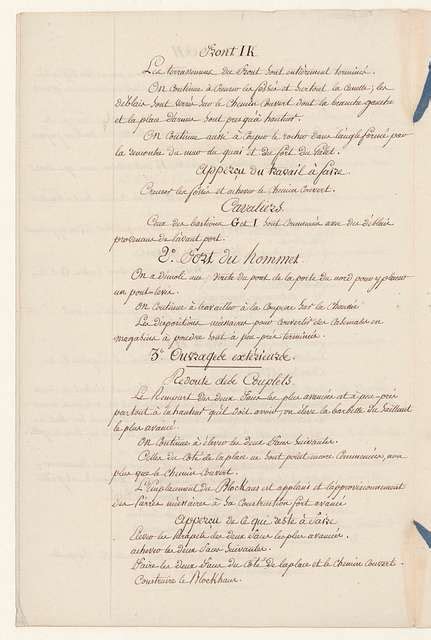 Front I K
Les terrassemens du Front sont entièrement terminés.
On continue à creuser les fossés et surtout la cunette; les
déblais sont versés sur le Chemin Couvert dont la branche gauche
et la place d'armes sont presqu'à hauteur.
On continue aussi à couper le rocher dans l'angle formé par
la rencontre du mur du quai et du fort du
Apperçu du travail à faire
Creuser les fossés et achever le chemin couvert.
Cavaliers
Ceux des bastions G et I sont commencés avec des déblais
provenans de l'avant port.
2°. Fort du hommet
On a démoli une du pont de la porte du nord pour y placer
un pont-levis.
On continue à travailler à la Coupure sur la Chaussée.
Les dispositions nécessaires pour convertir des Casemates en
magasins à poudre sont à peu-près terminées.
3°. Ouvrages extérieurs.
Redoute des Couplets
Le Rempart des deux faces les plus avancées est à peu-près
partout à la hauteur qu'il doit avoir; on élève la barbette du Saillant
le plus avancé.
On continue à élever les deux faces suivantes.
Celles du côté de la place ne sont point encore Commencées, non
plus que le chemin couvert.
L'Emplacement du Blockhaus est applani et l'approvisionnement
des pierres nécessaires à sa Construction fort avancé
Apperçu de ce qui reste à faire
Élever les Parapets des deux faces les plus avancées.
achever les deux faces suivantes.
Faire les deux faces du Côté de la place et le Chemin couvert.
Construire le Blockhaus.